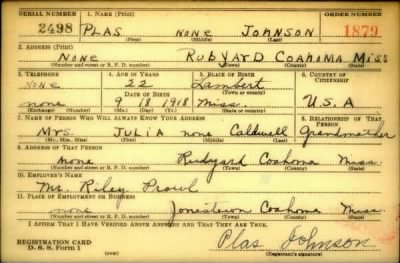 SERIAL NUMBER 1. NAME (Print) ORDER NUMBER
2498 PLAS NONE JOHNSON 1879
(First) (Middle) (Last)
2. ADDRESS (Print)
NONE RUBYARD COAHOMA MISS
(Number and street or R. F. D. number) (Town) (County) (State)
3. TELEPHONE 4. AGE IN YEARS 5. PLACE OF BIRTH 6. COUNTRY OF CITIZENSHIP
NONE 22 Lambert
DATE OF BIRTH (Town or county)
none 9 18 1918 Miss. U.S.A
(Exchange) (Number) (Mo.) (Day) (Yr.) (State or country)
7. NAME OF PERSON WHO WILL ALWAYS KNOW YOUR ADDRESS 8. RELATIONSHIP OF THAT PERSON
Mrs. JULIA none Caldwell Grandmother
(Mr., Mrs., Miss) (First) (Middle) (Last)
9. ADDRESS OF THAT PERSON
none Rudyard Coahoma Miss.
(Number and street or R. F. D. number) (Town) (County) (State)
10. EMPLOYER'S NAME
Mr. Riley Prowl
11. PLACE OF EMPLOYMENT OR BUSINESS
none Jonestown Coahoma Miss
(Number and street or R. F. D. number) (Town) (County) (State)
I AFFIRM THAT I HAVE VERIFIED ABOVE ANSWERS AND THAT THEY ARE TRUE.
REGISTRATION CARD Plas Johnson
D. S. S. Form 1 (over) (Registrant's signature)